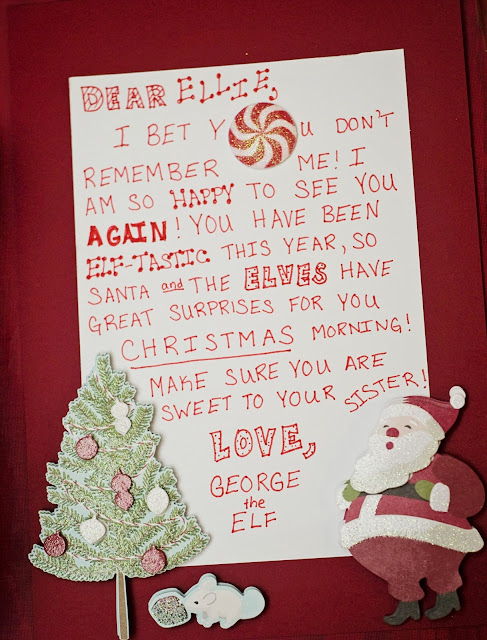 DEAR ELLIE,
I BET YOU DON'T
REMEMBER ME! I
AM SO HAPPY TO SEE YOU
AGAIN! YOU HAVE BEEN
ELF-TASTIC THIS YEAR, SO
SANTA and THE ELVES HAVE
GREAT SURPRISES FOR YOU
CHRISTMAS MORNING!
MAKE SURE YOU ARE
SWEET TO YOUR SISTER!
LOVE,
GEORGE
the
ELF